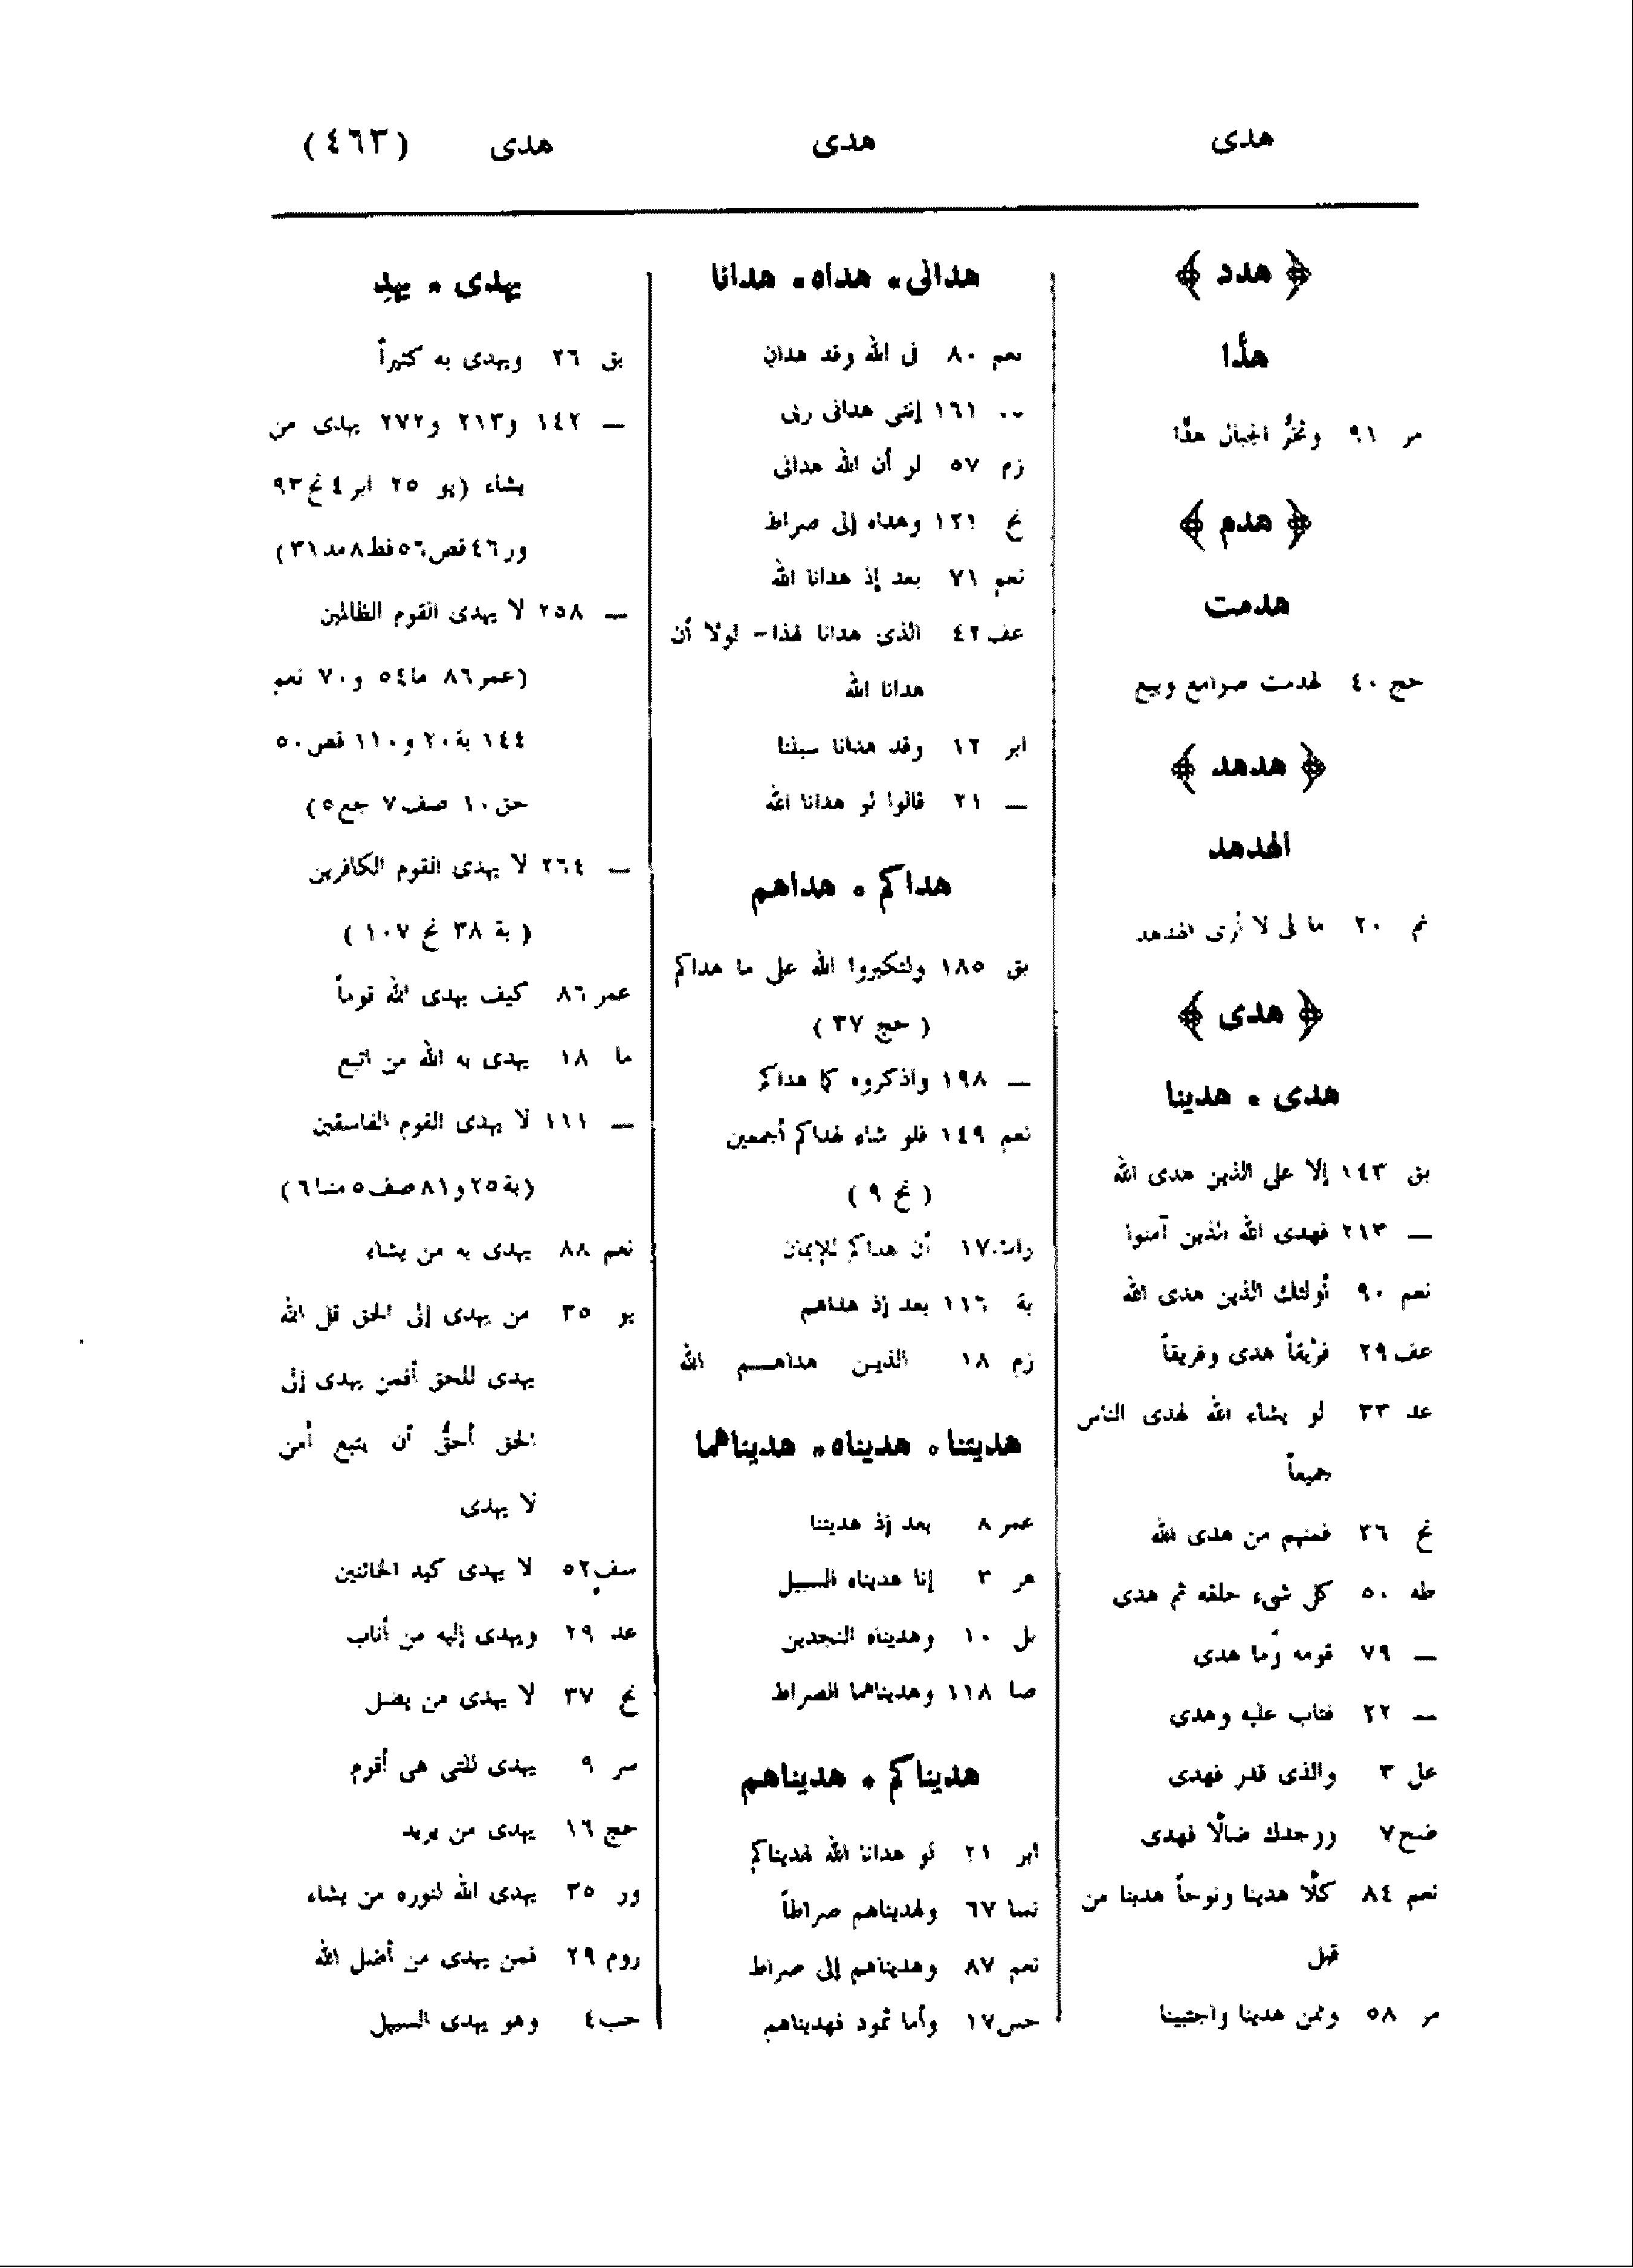 هدى
هدى
هدى
(٤٦٣)
﴿ هدد ﴾
هدًّا
مر ٩١ وتخرُّ الجبال هدًّا
﴿ هدم ﴾
هدمت
حج ٤٠ لهدمت صوامع وبيع
﴿ هدهد ﴾
الهدهد
نم ٢٠ ما لى لا أرى الهدهد
﴿ هدى ﴾
هدى ٠ هدينا
بق ١٤٣ إلا على الذين هدى الله
— ٢١٣ فهدى الله الذين آمنوا
نعم ٩٠ أولئك الذين هدى الله
عف ٢٩ فريقاً هدى وفريقاً
عد ٣٣ لو يشاء الله لهدى الناس
جميعاً
نح ٣٦ فمنهم من هدى الله
طه ٥٠ كل شىء خلقه ثم هدى
— ٧٩ قومه وما هدى
— ٢٢ فتاب عليه وهدى
عل ٣ والذى قدر فهدى
ضح ٧ ووجدك ضالًا فهدى
نعم ٨٤ كلًا هدينا ونوحاً هدينا من
قبل
مر ٥٨ وممن هدينا واجتبينا
هدانى ٠ هداه ٠ هدانا
نعم ٨٠ فى الله وقد هدان
.. ١٦١ إننى هدانى ربى
زم ٥٧ لو أن الله هدانى
نح ١٢١ وهداه إلى صراط
نعم ٧١ بعد إذ هدانا الله
عف ٤٢ الذى هدانا لهذا - لولا أن
هدانا الله
ابر ١٢ وقد هدانا سبلنا
— ٢١ قالوا لو هدانا الله
هداكم ٠ هداهم
بق ١٨٥ ولتكبروا الله على ما هداكم
( حج ٣٧ )
— ١٩٨ واذكروه كما هداكم
نعم ١٤٩ فلو شاء لهداكم أجمعين
( نح ٩ )
رات ١٧ أن هداكم للإيمان
بة ١١٦ بعد إذ هداهم
زم ١٨ الذين هداهم الله
هديتنا ٠ هديناه ٠ هديناهما
عمر ٨ بعد إذ هديتنا
هر ٣ إنا هديناه السبيل
بل ١٠ وهديناه النجدين
صا ١١٨ وهديناهما الصراط
هديناكم ٠ هديناهم
ابر ٢١ لو هدانا الله لهديناكم
نسا ٦٧ ولهديناهم صراطاً
نعم ٨٧ وهديناهم إلى صراط
حس ١٧ وأما ثمود فهديناهم
يهدى ٠ يهد
بق ٢٦ ويهدى به كثيراً
— ١٤٢ و٢١٣ و٢٧٢ يهدى من
يشاء (يو ٢٥ ابر ٤ نح ٩٣
ور ٤٦ قص ٥٦ فط ٨ مد ٣١)
— ٢٥٨ لا يهدى القوم الظالمين
(عمر ٨٦ ما ٥٤ و٧٠ نعم
١٤٤ بة ٢٠ و١١٠ قص ٥٠
حق ١٠ صف ٧ جع ٥)
— ٢٦٤ لا يهدى القوم الكافرين
( بة ٣٨ نح ١٠٧ )
عمر ٨٦ كيف يهدى الله قوماً
ما ١٨ يهدى به الله من اتبع
— ١١١ لا يهدى القوم الفاسقين
(بة ٢٥ و٨١ صف ٥ منا ٦)
نعم ٨٨ يهدى به من يشاء
يو ٣٥ من يهدى إلى الحق قل الله
يهدى للحق أفمن يهدى إلى
الحق أحقُّ أن يتبع أمن
لا يهدى
سف ٥٢ لا يهدى كيد الخائنين
عد ٢٩ ويهدى إليه من أناب
نح ٣٧ لا يهدى من يضل
سر ٩ يهدى للتى هى أقوم
حج ١٦ يهدى من يريد
ور ٣٥ يهدى الله لنوره من يشاء
روم ٢٩ فمن يهدى من أضل الله
حب ٤ وهو يهدى السبيل